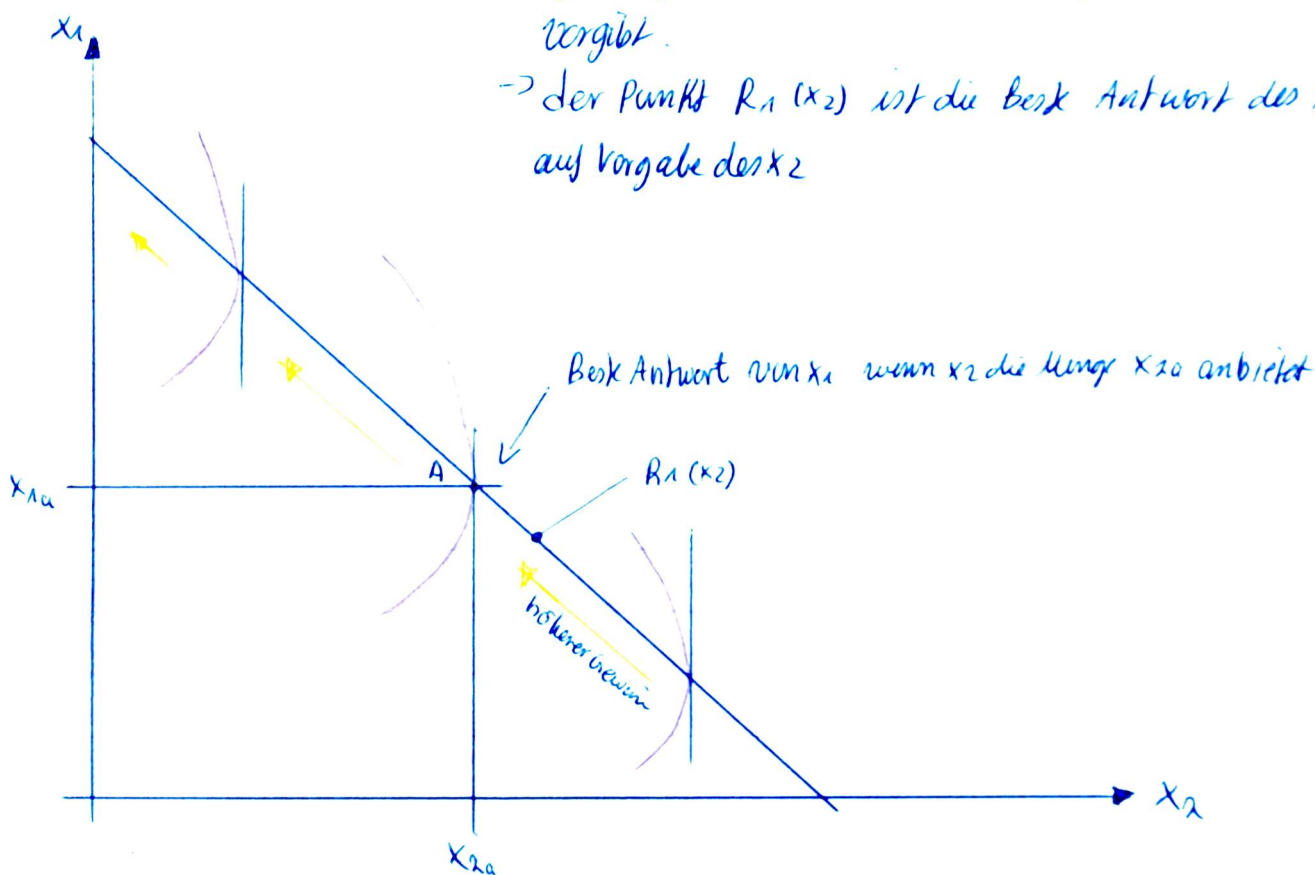 x1
vorgibt.
-> der Punkt R1 (x2) ist die Beste Antwort des
auf Vorgabe des x2
Beste Antwort von x1 wenn x2 die Menge x2a anbietet
A
R1 (x2)
x1a
höherer Gewinn
x2
x2a